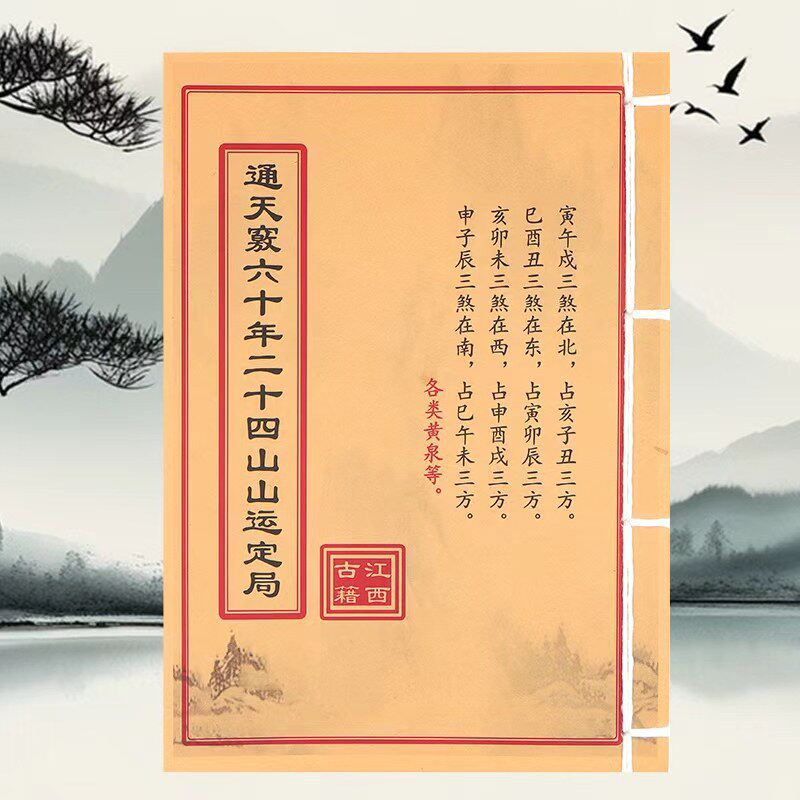 寅午戌三煞在北，占亥子丑三方。
巳酉丑三煞在东，占寅卯辰三方。
亥卯未三煞在西，占申酉戌三方。
申子辰三煞在南，占巳午未三方。
各类黄泉等。
江西
古籍
通天竅六十年二十四山山运定局